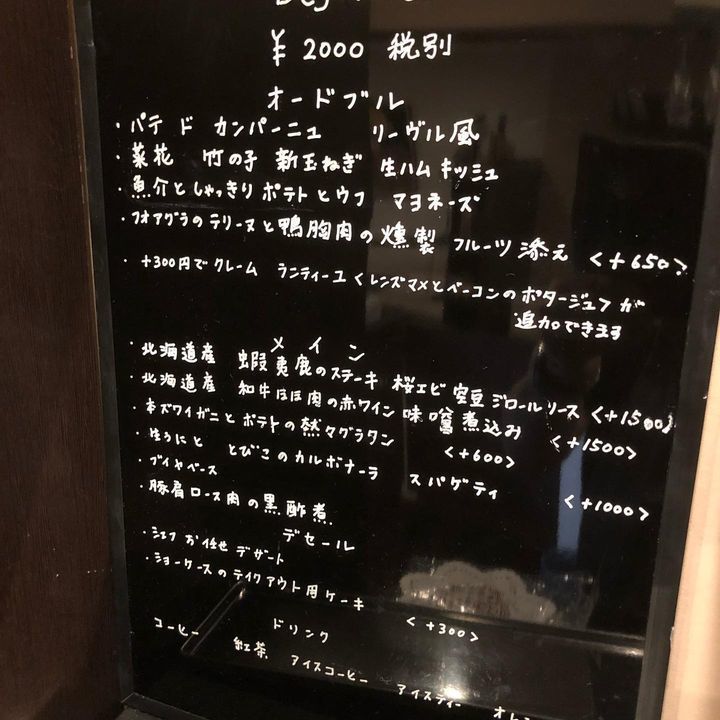 ¥2000 税別
オードブル
・パテ ド カンパーニュ リーヴル風
・菜花 竹の子 新玉ねぎ 生ハム キッシュ
・魚介としゃっきりポテトとウフ マヨネーズ
・フォアグラのテリーヌと鴨胸肉の燻製 フルーツ添え <+650>
・+300円で クレーム ランティーユ くレンズマメとベーコンのポタージュ>が
追加できます
メイン
・北海道産 蝦夷鹿のステーキ 桜エビ 空豆 ジロールソース <+1500>
・北海道産 和牛ほほ肉の赤ワイン味噌煮込み <+1500>
・本ズワイガニとポテトの熱々グラタン <+600>
・生うにと とびこのカルボナーラ スパゲティ <+1000>
・ブイヤベース
・豚肩ロース肉の黒酢煮
デセール
・シェフ お任せ デザート
・ショーケースのテイクアウト用ケーキ <+300>
ドリンク
コーヒー 紅茶 アイスコーヒー アイスティー